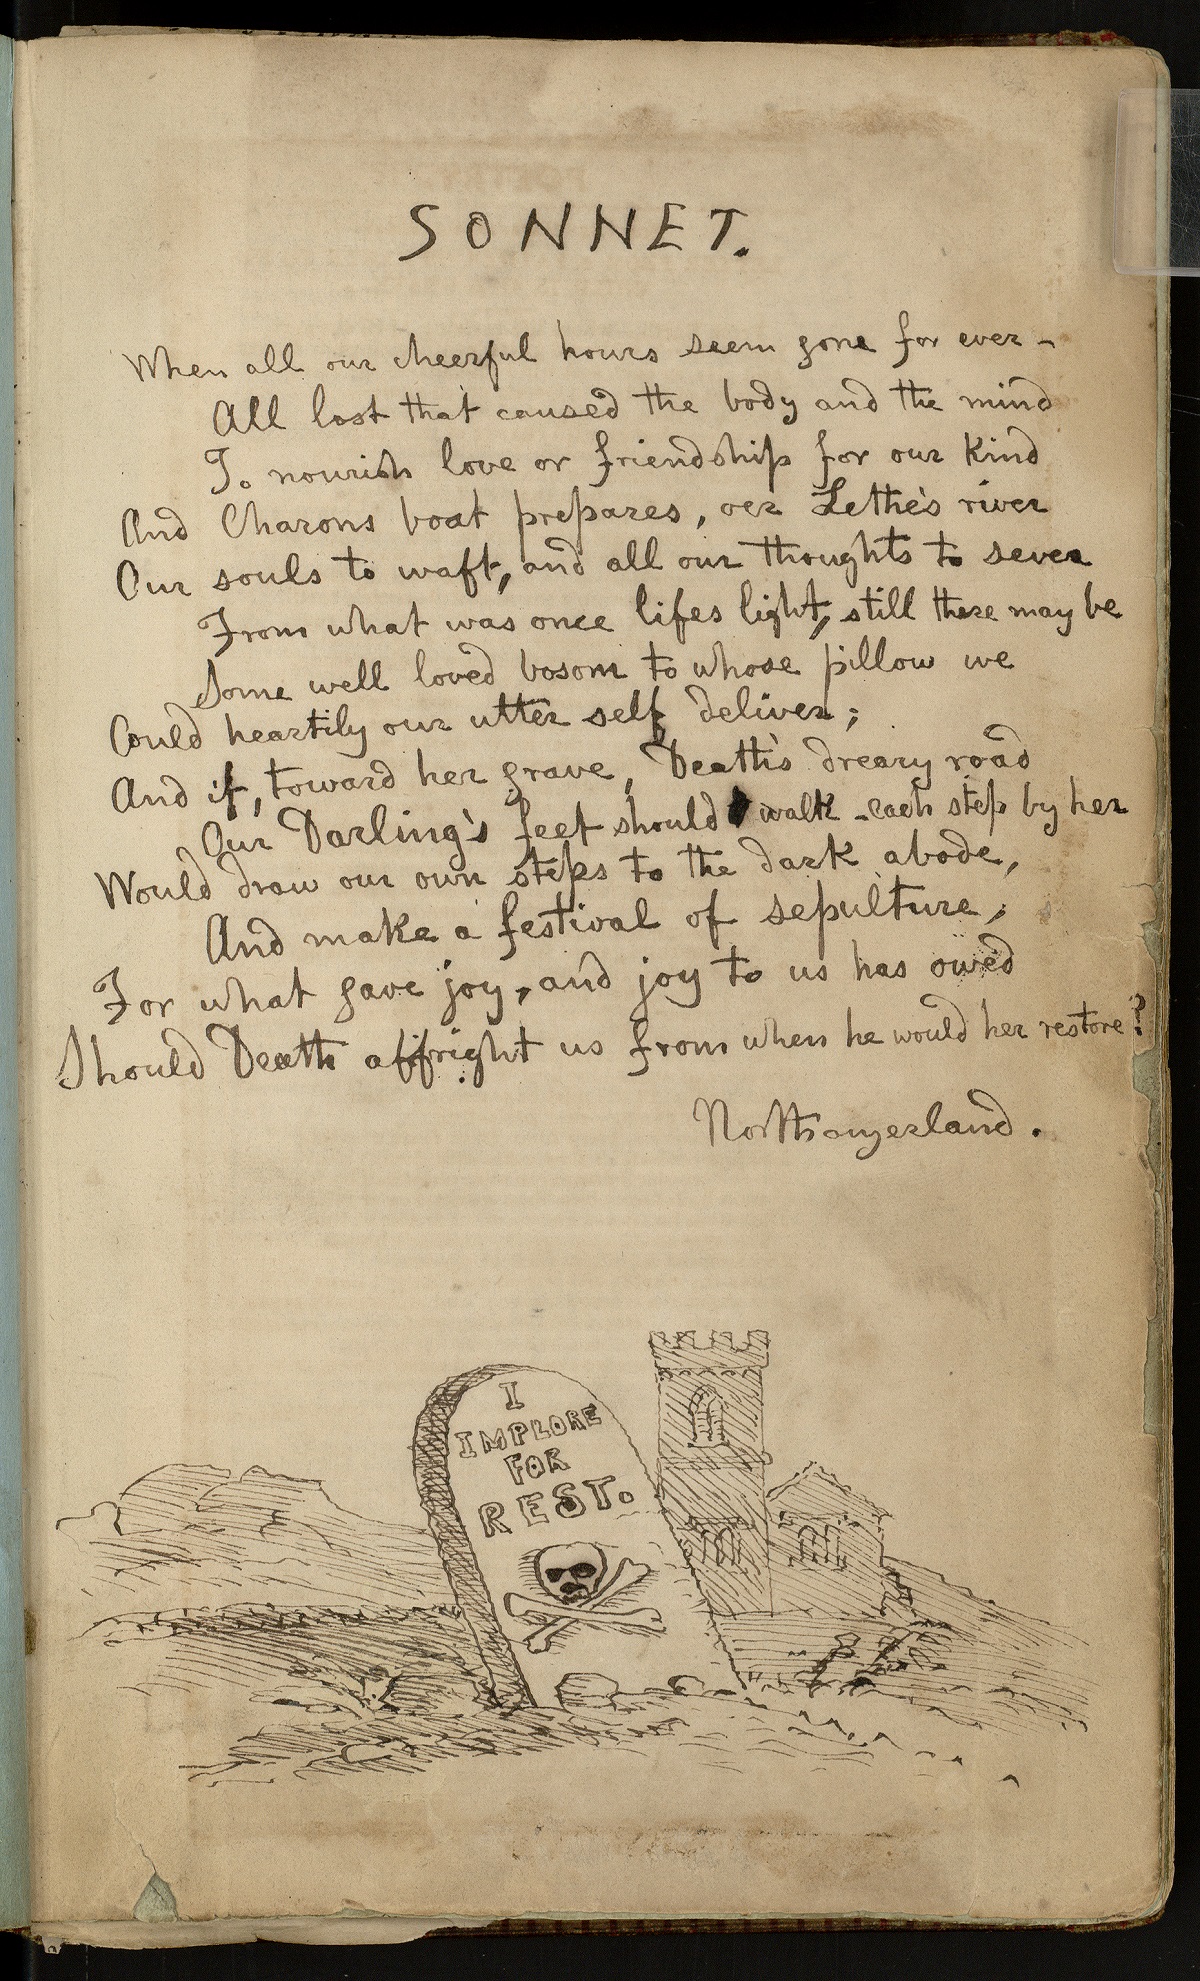 SONNET.
When all our cheerful hours seem gone for ever -
All lost that caused the body and the mind
To nourish love or friendship for our kind
And Charons boat prepares, oer Lethe's river
Our souls to waft, and all our thoughts to sever
From what was once lifes light, still there may be
Some well loved bosom to whose pillow we
Could heartily our utter self deliver;
And if, toward her grave, Death's dreary road
Our Darling's feet should walk - each step by her
Would draw our own steps to the dark abode,
And make a festival of sepulture,
For what gave joy, and joy to us has owed
Should Death affright us from when he would her restore?
Northangerland.
I
IMPLORE
FOR
REST.